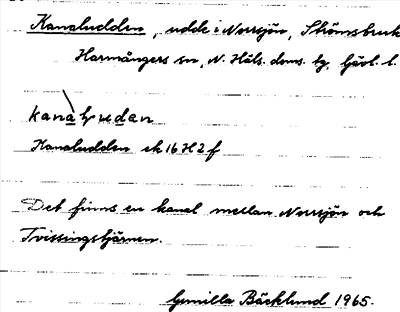 Kanaludden, udde i Norrsjön, Strömsbruk
Harmångers sn, N. Häls. doms. tg, Gävl. l.
Kanaludden ek 16 H 2 f
Det finns en kanal mellan Norrsjön och
Tvissingstjärnen.
Gunilla Bäcklund 1965.